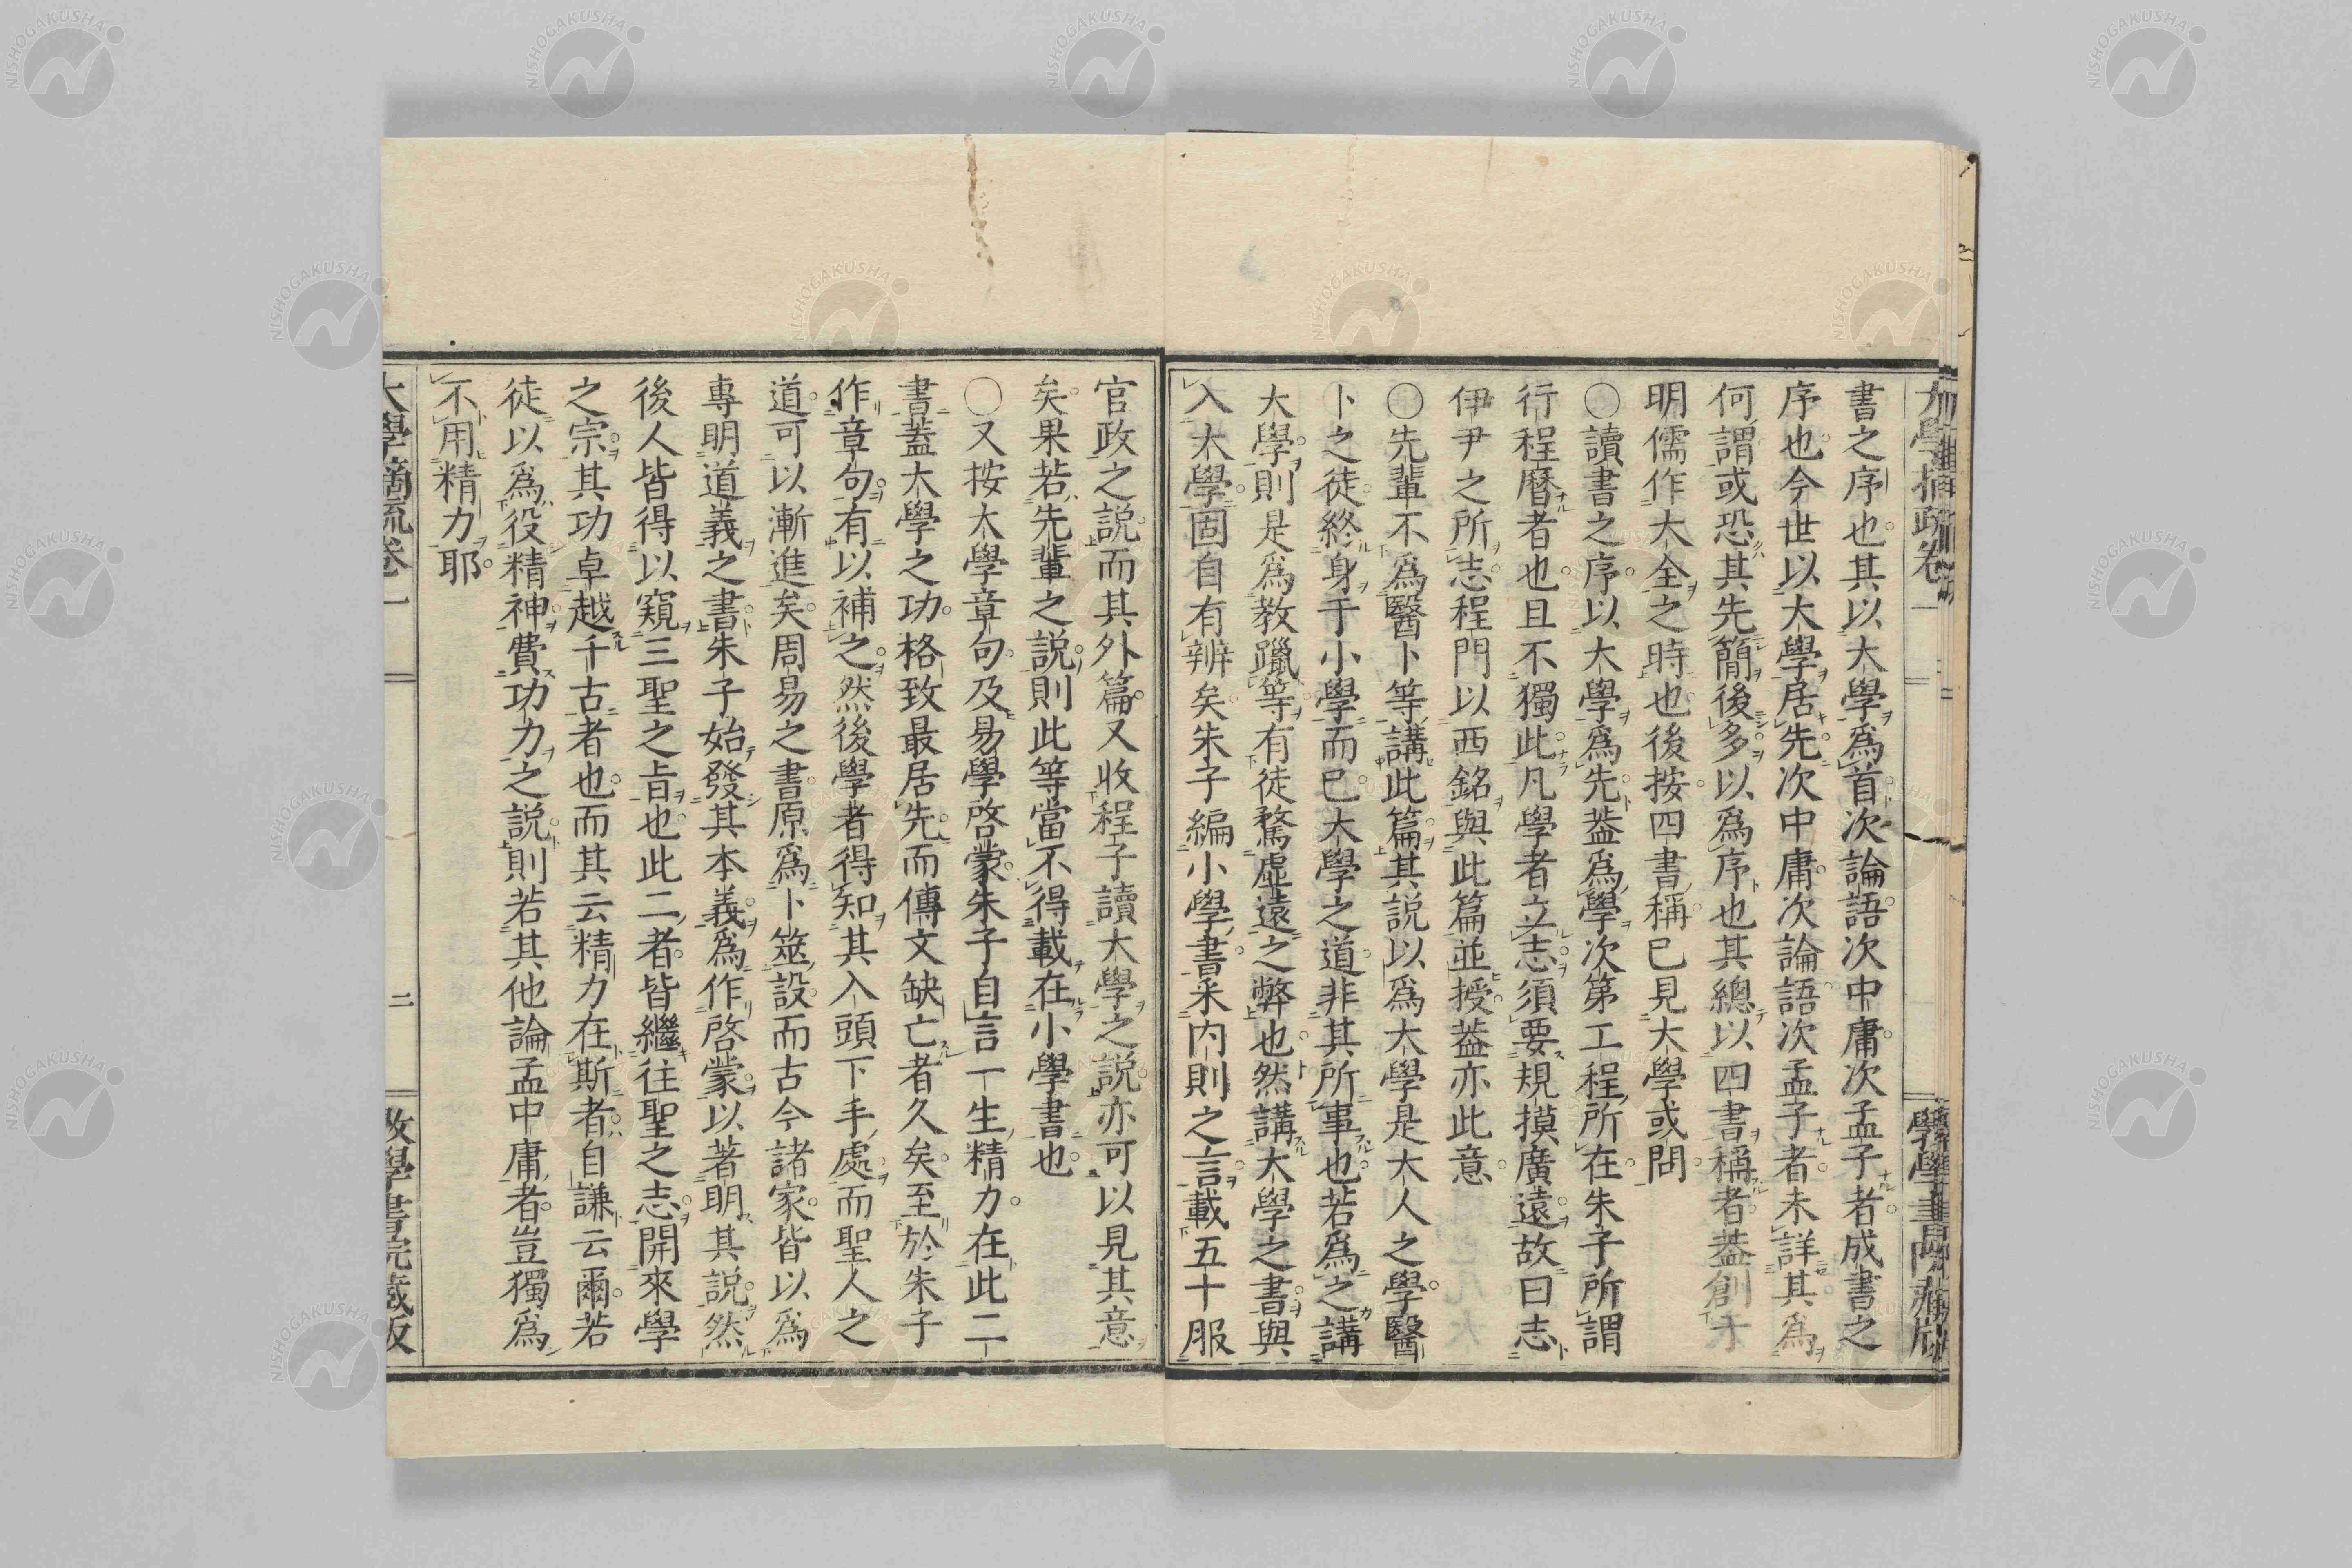 書之序也其以大學爲首次論語次中庸次孟子者成書之
序也今世以大學居先次中庸次論語次孟子者未詳其爲
何謂或恐其先簡後多以爲序也其總以四書稱者葢創于
明儒作大全之時也後按四書稱已見大學或問
○讀書之序以大學爲先葢爲學次第工程所在朱子所謂
行程曆者也且不獨此凡學者立志須要規摸廣遠故曰志
伊尹之所志程門以西銘與此篇並授葢亦此意
○先輩不爲醫卜等講此篇其説以爲大學是大人之學醫
卜之徒終身于小學而已大學之道非其所事也若爲之講
大學則是爲教躐等有徒騖虛遠之弊也然講大學之書與
入大學固自有辨矣朱子編小學書采内則之言載五十服
官政之説而其外篇又收程子讀大學之説亦可以見其意
矣果若先輩之説則此等當不得載在小學書也
○又按大學章句及易學啓蒙朱子自言一生精力在此二
書葢大學之功格致最居先而傳文缺亡者久矣至於朱子
作章句有以補之然後學者得知其入頭下手處而聖人之
道可以漸進矣周易之書原爲卜筮設而古今諸家皆以爲
專明道義之書朱子始發其本義爲作啓蒙以著明其説然
後人皆得以窺三聖之旨也此二者皆繼往聖之志開來學
之宗其功卓越千古者也而其云精力在斯者自謙云爾若
徒以爲役精神費功力之説則若其他論孟中庸者豈獨爲
不用精力耶
大學摘疏卷一 二
NISHOGAKUSHA